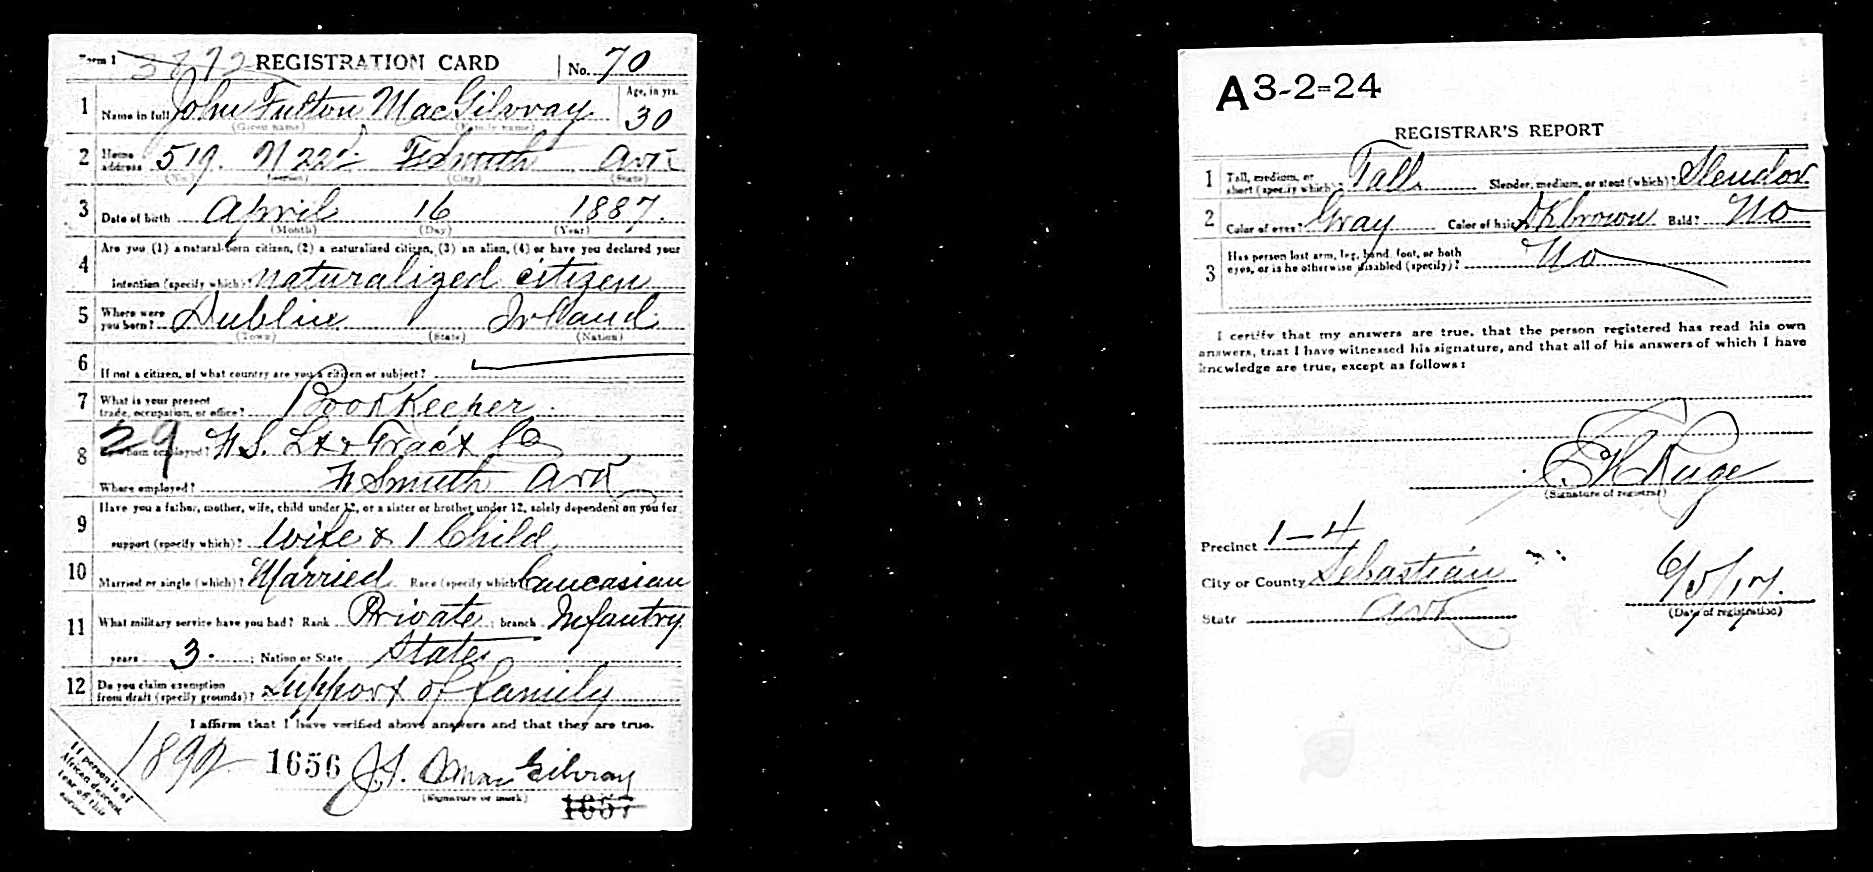 Form 1 3872 REGISTRATION CARD No. 70
1 Name in full John Fulton MacGilvray Age, in yrs. 30
(Given name) (Family name)
2 Home address 519. N 22d Ft Smith Ark
(No.) (Street) (City) (State)
3 Date of birth April 16 1887.
(Month) (Day) (Year)
Are you (1) a natural-born citizen, (2) a naturalized citizen, (3) an alien, (4) or have you declared your
4 intention (specify which)? naturalized citizen
5 Where were you born? Dublin Irland
(Town) (State) (Nation)
6 If not a citizen, of what country are you a citizen or subject?
7 What is your present trade, occupation, or office? Bookkeeper.
29
8 By whom employed? Ft S. Lt & Tract Co
Where employed? Ft Smith Ark
9 Have you a father, mother, wife, child under 12, or a sister or brother under 12, solely dependent on you for
support (specify which)? Wife & 1 Child
10 Married or single (which)? Married Race (specify which)? Caucasian
11 What military service have you had? Rank Private ; branch Infantry
years 3. ; Nation or State States
12 Do you claim exemption from draft (specify grounds)? Support of family
I affirm that I have verified above answers and that they are true.
1892 1656 J. F. MacGilvray
(Signature or mark)
1657
If person is of
African descent,
tear off this
corner
A 3-2-24
REGISTRAR'S REPORT
1 Tall, medium, or short (specify which)? Tall Slender, medium, or stout (which)? Slendor
2 Color of eyes? Gray Color of hair? Dk brown Bald? No
3 Has person lost arm, leg, hand, foot, or both
eyes, or is he otherwise disabled (specify)? No
I certify that my answers are true, that the person registered has read his own
answers, that I have witnessed his signature, and that all of his answers of which I have
knowledge are true, except as follows:
Ruge
(Signature of registrar)
Precinct 1-4
City or County Sebastian
State Ark
6/5/17.
(Date of registration)